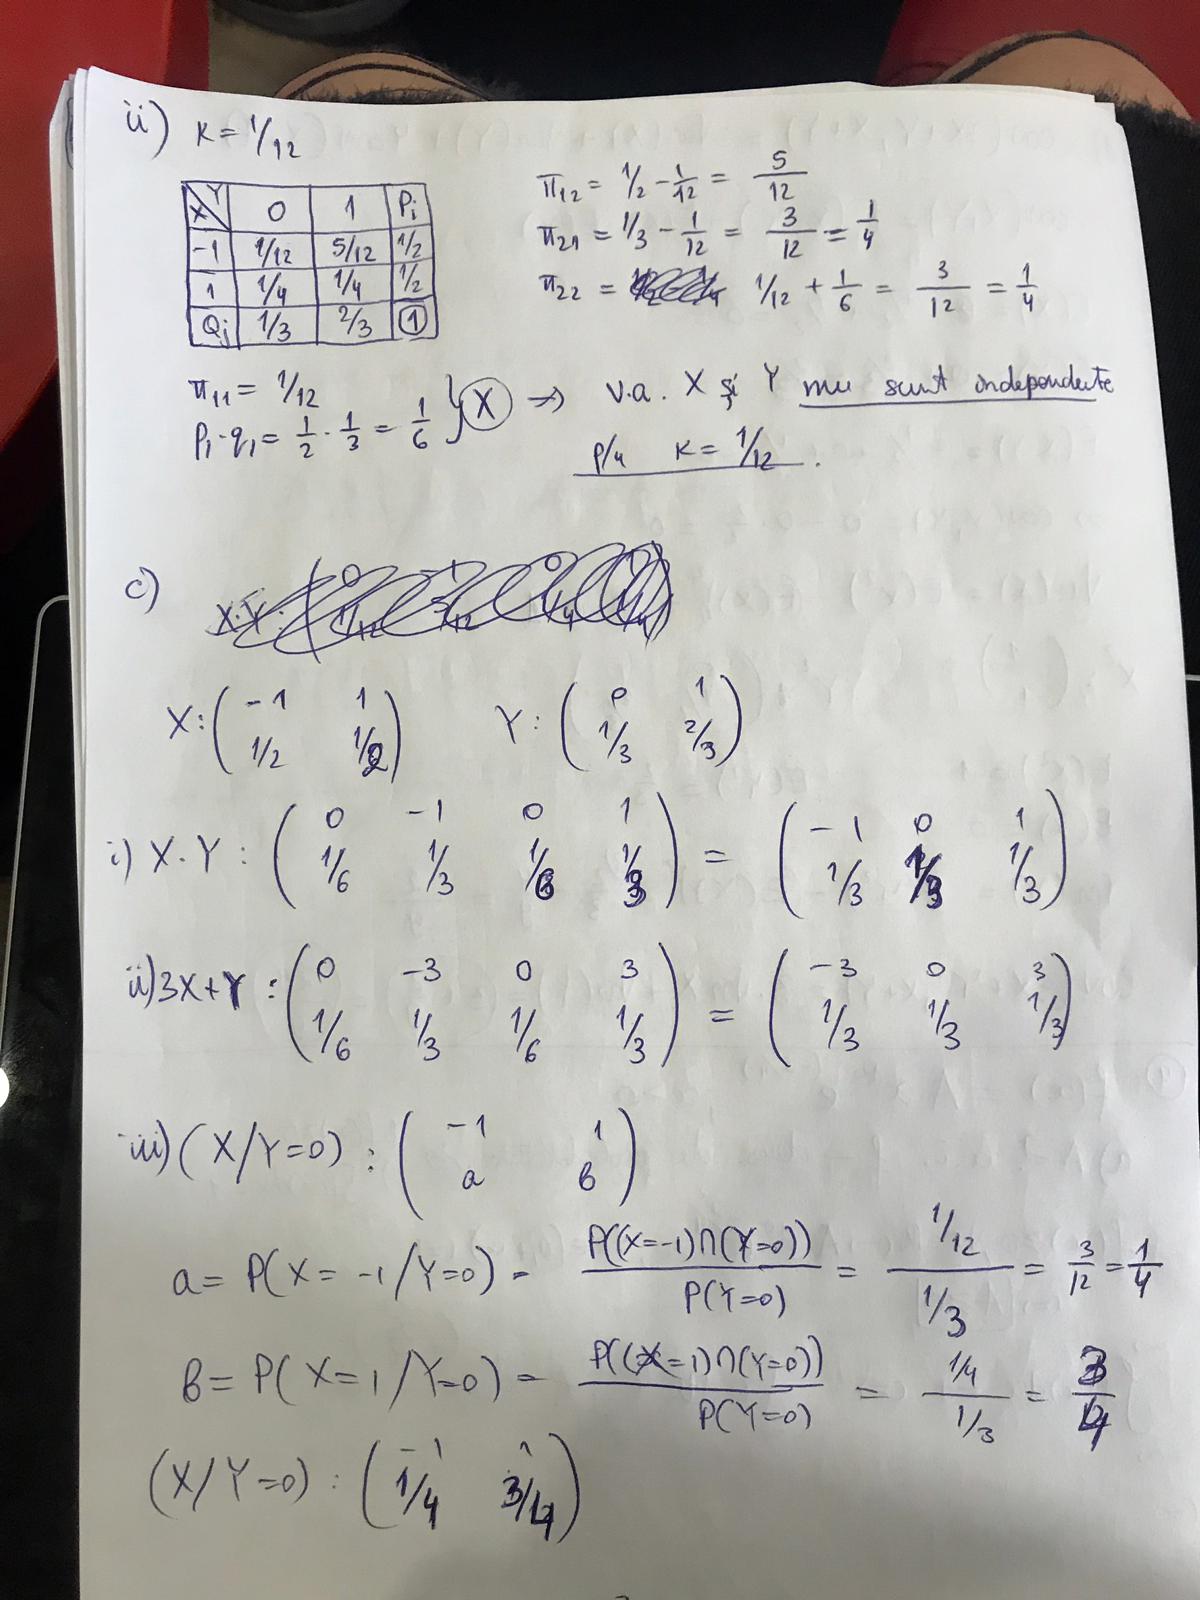 ii) K = 1/12
X\Y 0 1 Pi
-1 1/12 5/12 1/2
1 1/4 1/4 1/2
Qj 1/3 2/3 1
π12 = 1/2 - 1/12 = 5/12
π21 = 1/3 - 1/12 = 3/12 = 1/4
π22 = 1/12 + 1/6 = 3/12 = 1/4
π11 = 1/12
P1·q1 = 1/2 · 1/3 = 1/6 } X => v.a. X și Y nu sunt independente
p/u K = 1/12.
c)
X: ( -1 1 ; 1/2 1/2 ) Y: ( 0 1 ; 1/3 2/3 )
i) X·Y : ( 0 -1 0 1 ; 1/6 1/3 1/6 1/3 ) = ( -1 0 1 ; 1/3 1/3 1/3 )
ii) 3X+Y : ( 0 -3 0 3 ; 1/6 1/3 1/6 1/3 ) = ( -3 0 3 ; 1/3 1/3 1/3 )
iii) (X/Y=0) : ( -1 1 ; a b )
a = P(X = -1/Y=0) = P((X=-1)∩(Y=0)) / P(Y=0) = 1/12 / 1/3 = 3/12 = 1/4
b = P(X=1/Y=0) = P((X=1)∩(Y=0)) / P(Y=0) = 1/4 / 1/3 = 3/4
(X/Y=0) : ( -1 1 ; 1/4 3/4 )